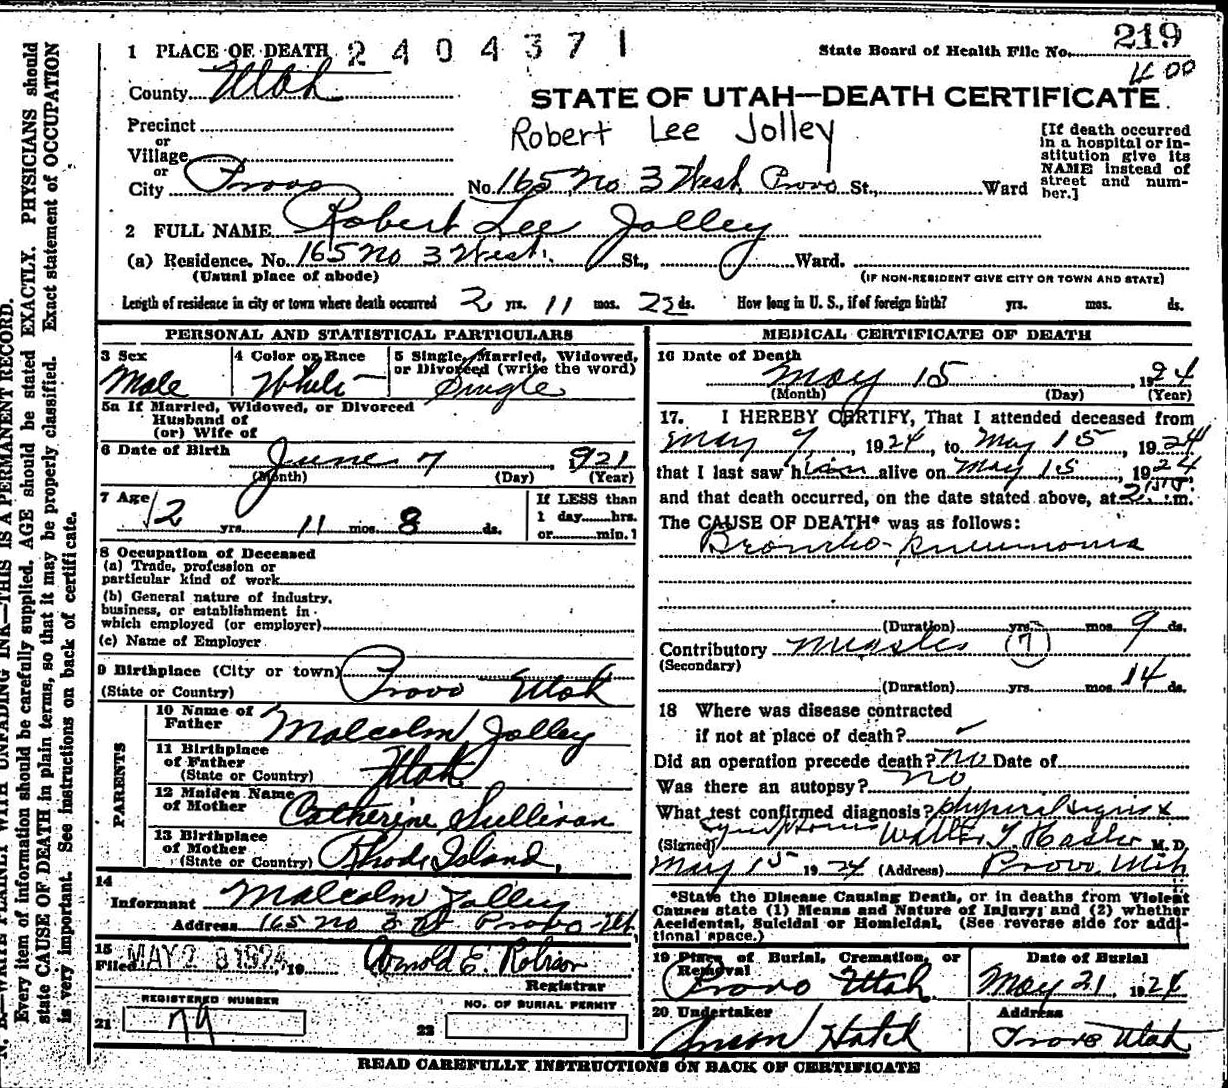 219
1 PLACE OF DEATH 2404371 State Board of Health File No.
400
County Utah
STATE OF UTAH—DEATH CERTIFICATE
Precinct
or
Village
or
City Provo No. 165 No 3 West Provo St., Ward
Robert Lee Jolley
[If death occurred
in a hospital or in-
stitution give its
NAME instead of
street and num-
ber.]
2 FULL NAME Robert Lee Jolley
(a) Residence. No. 165 No 3 West. St., Ward.
(Usual place of abode) (IF NON-RESIDENT GIVE CITY OR TOWN AND STATE)
Length of residence in city or town where death occurred 2 yrs. 11 mos. ds. How long in U. S., if of foreign birth? yrs. mos. ds.
PERSONAL AND STATISTICAL PARTICULARS
3 Sex
Male
4 Color or Race
White
5 Single, Married, Widowed,
or Divorced (write the word)
Single
5a If Married, Widowed, or Divorced
Husband of
(or) Wife of
6 Date of Birth June 7, 1921
(Month) (Day) (Year)
7 Age 2 yrs. 11 mos 8 ds.
If LESS than
1 day......hrs.
or......min.
8 Occupation of Deceased
(a) Trade, profession or
particular kind of work
(b) General nature of industry,
business, or establishment in
which employed (or employer)
(c) Name of Employer
9 Birthplace (City or town) Provo Utah
(State or Country)
PARENTS
10 Name of
Father Malcolm Jolley
11 Birthplace
of Father Utah
(State or Country)
12 Maiden Name
of Mother Catherine Sullivan
13 Birthplace
of Mother
(State or Country) Rhode Island,
14
Informant Malcolm Jolley
Address 165 No 3 Provo Ut.
15
Filed MAY 28 1924, 19 Arnold E. Robison
Registrar
REGISTERED NUMBER
21 79
NO. OF BURIAL PERMIT
22
MEDICAL CERTIFICATE OF DEATH
16 Date of Death
May 15, 1924
(Month) (Day) (Year)
17. I HEREBY CERTIFY, That I attended deceased from
May 7, 1924, to May 15, 1924
that I last saw him alive on May 15, 1924
and that death occurred, on the date stated above, at m.
The CAUSE OF DEATH* was as follows:
Broncho-pneumonia
(Duration) yrs. mos. 9 ds.
Contributory Measles 7
(Secondary)
(Duration) yrs. mos. 14 ds.
18 Where was disease contracted
if not at place of death?
Did an operation precede death? no Date of
Was there an autopsy? no
What test confirmed diagnosis? physical signs &
symptoms
(Signed) Walter T. Hasler M. D.
May 15 1924 (Address) Provo, Utah
*State the Disease Causing Death, or in deaths from Violent
Causes state (1) Means and Nature of Injury; and (2) whether
Accidental, Suicidal or Homicidal. (See reverse side for addi-
tional space.)
19 Place of Burial, Cremation, or
Removal
Provo Utah
Date of Burial
May 21, 1924
20 Undertaker
Anson Hatch
Address
Provo Utah
READ CAREFULLY INSTRUCTIONS ON BACK OF CERTIFICATE
N. B.—WRITE PLAINLY WITH UNFADING INK—THIS IS A PERMANENT RECORD.
Every item of information should be carefully supplied. AGE should be stated EXACTLY. PHYSICIANS should
state CAUSE OF DEATH in plain terms, so that it may be properly classified. Exact statement of OCCUPATION
is very important. See instructions on back of certificate.